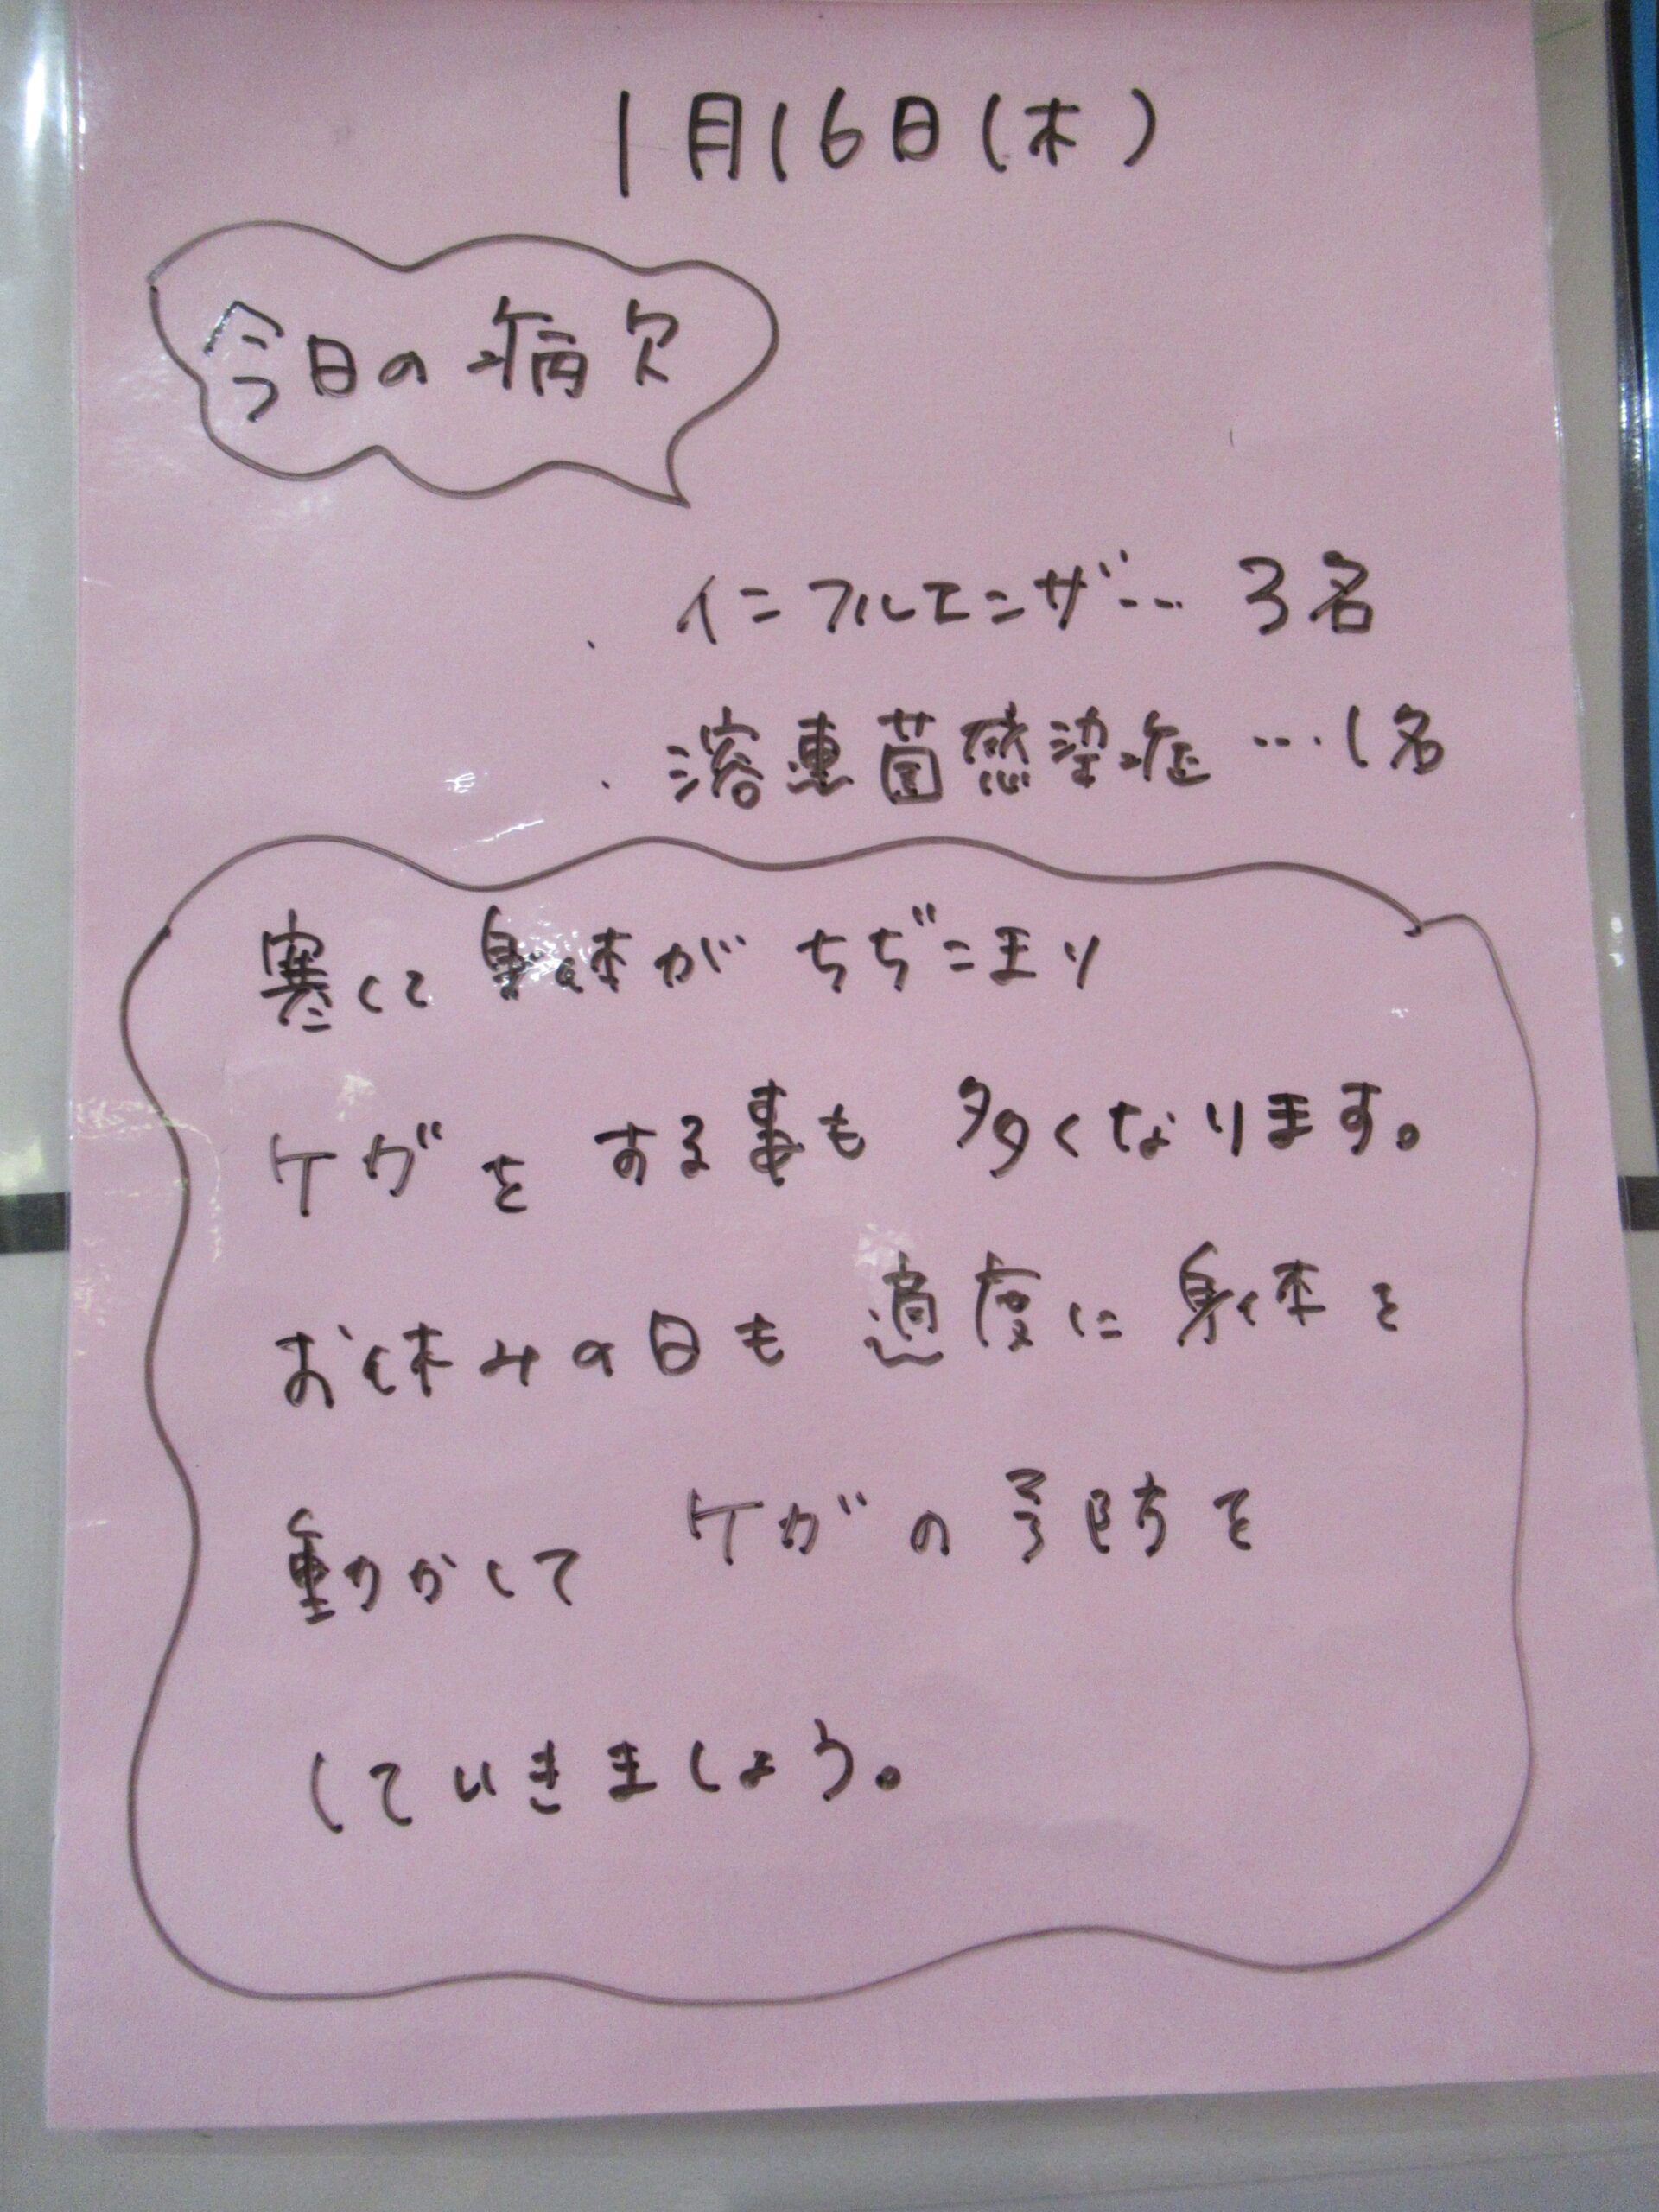 1月16日(木)
今日の病欠
・インフルエンザ… 3名
・溶連菌感染症…1名
寒くて身体がちぢこまり
ケガをする事も多くなります。
お休みの日も適度に身体を
動かしてケガの予防を
していきましょう。